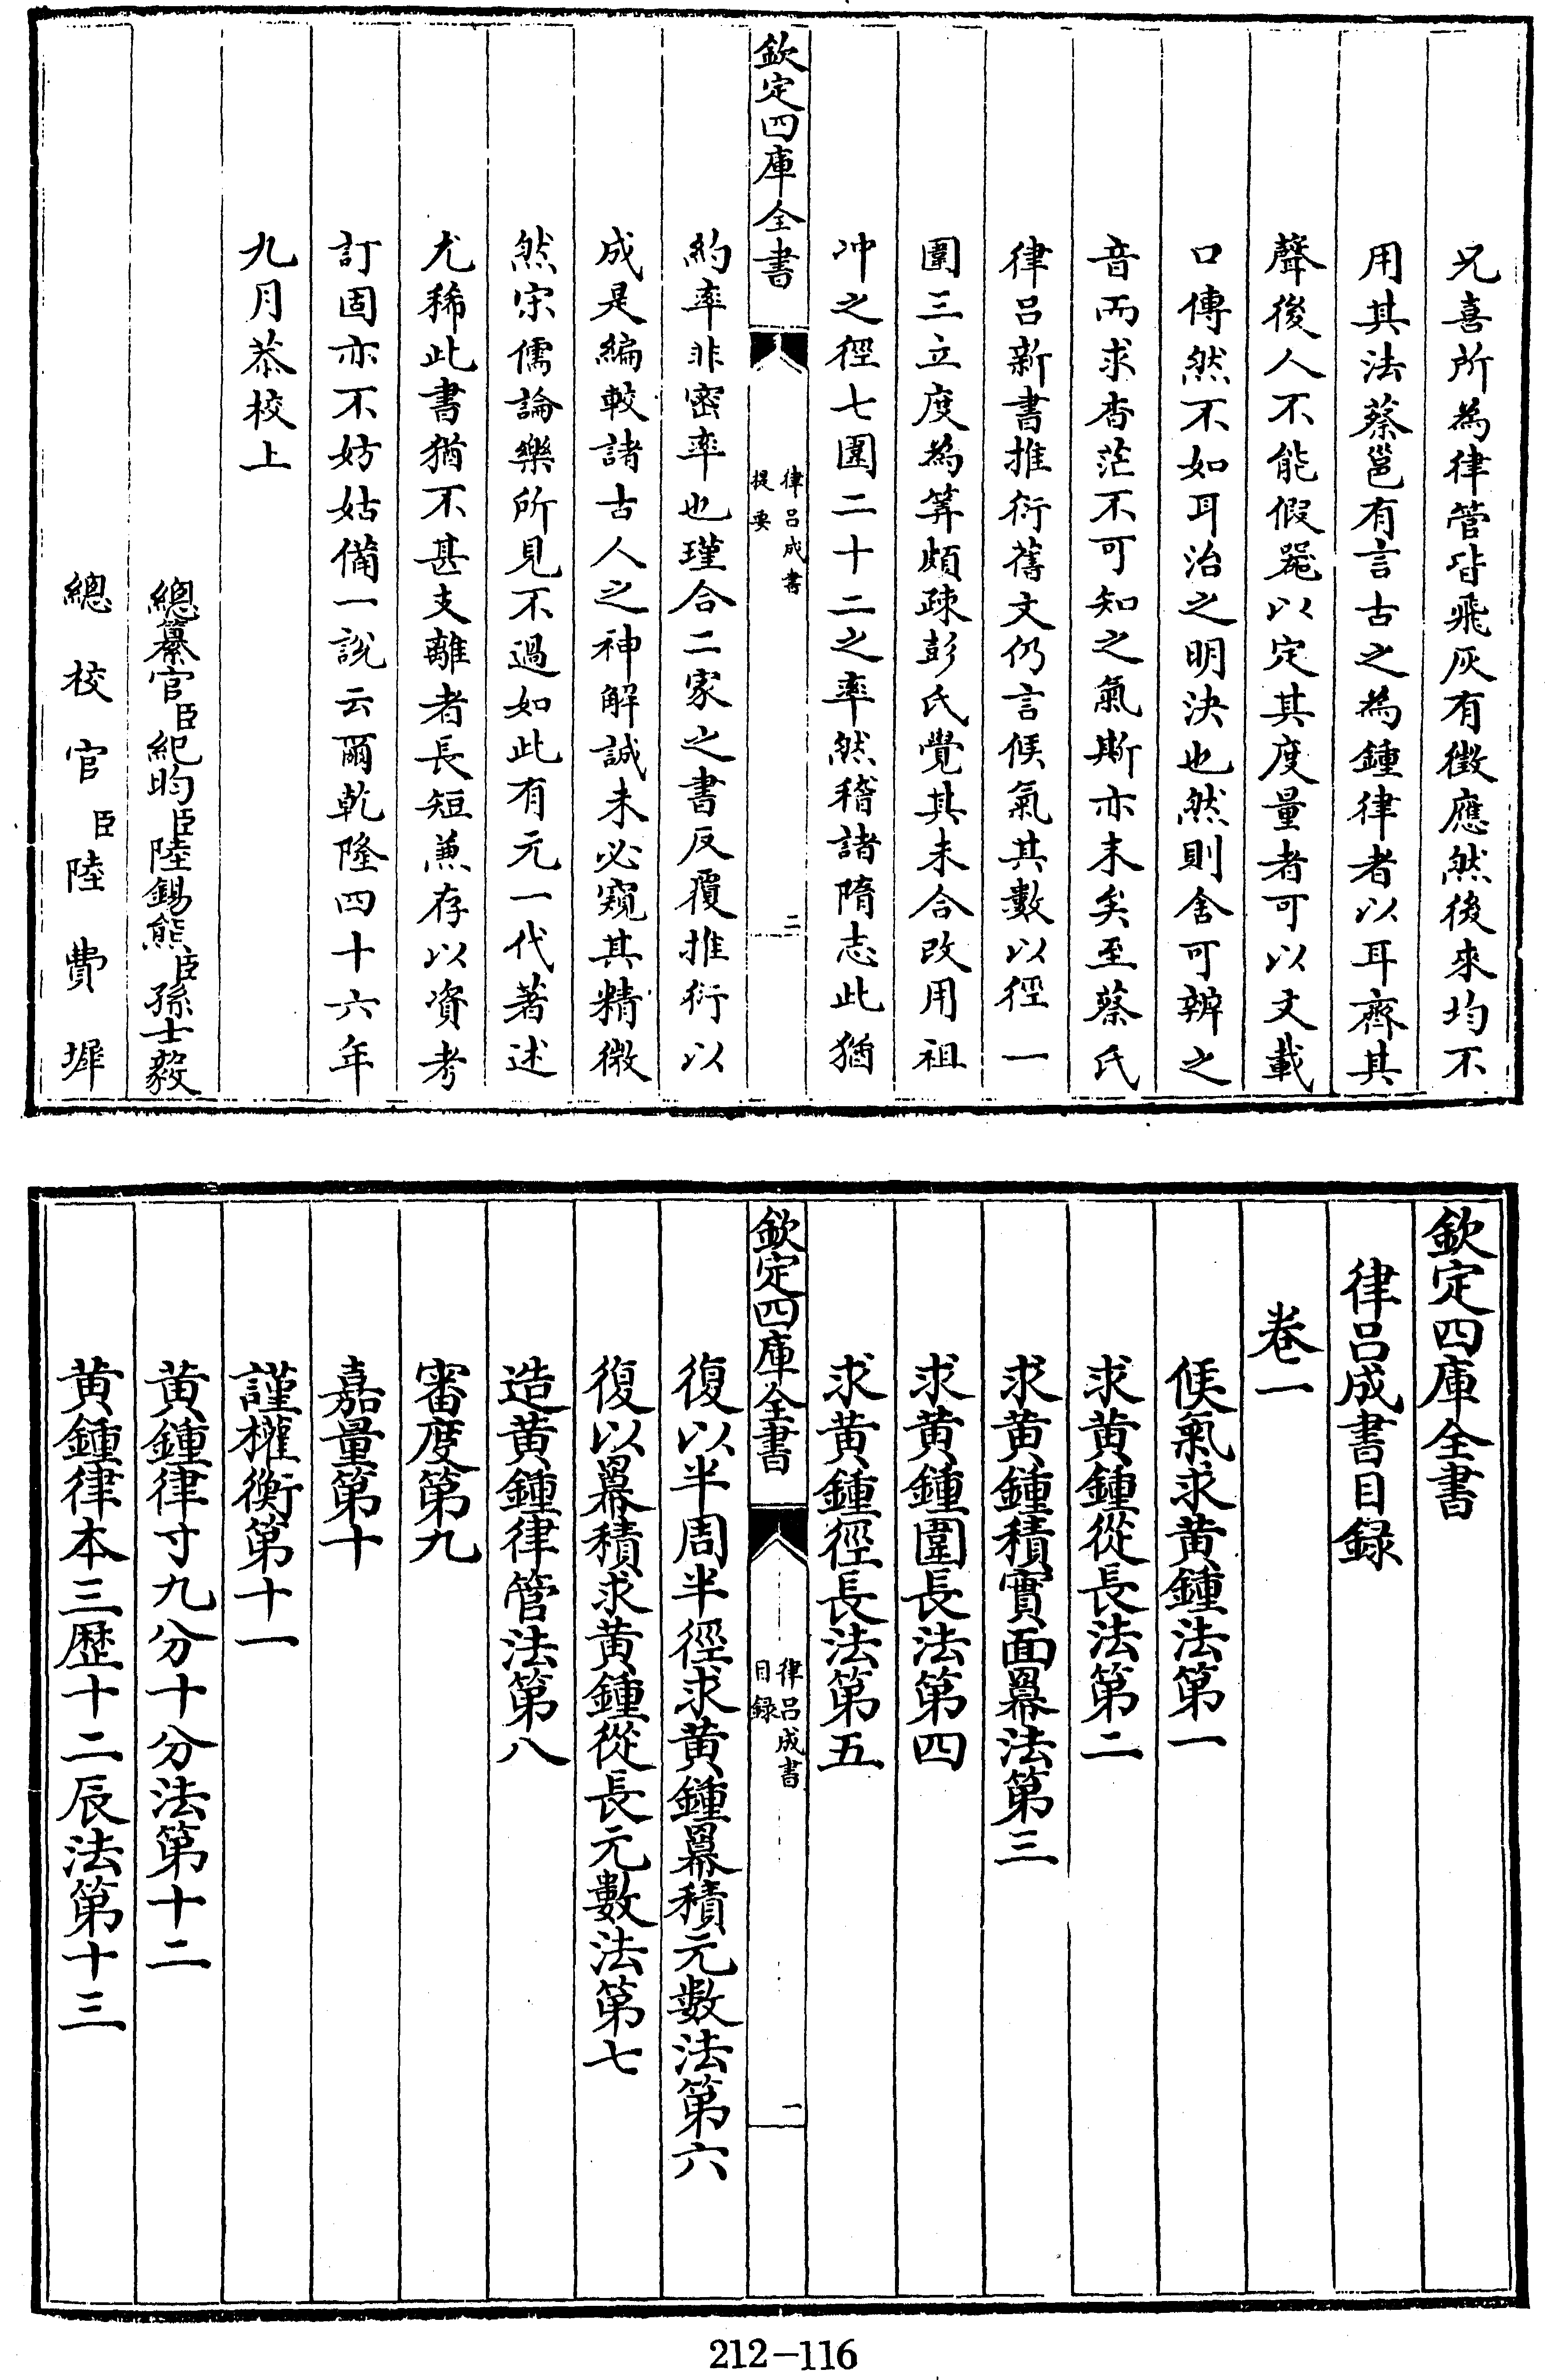 兄喜所為律管皆飛灰有徵應然後來均不
用其法蔡邕有言古之為鍾律者以耳齊其
聲後人不能假器以定其度量者可以文載
口傳然不如耳治之明決也然則舍可辨之
音而求杳茫不可知之氣斯亦末矣至蔡氏
律呂新書推衍舊文仍言候氣其數以徑一
圍三立度為筭頗疎彭氏覺其未合改用祖
冲之徑七圍二十二之率然稽諸隋志此猶
欽定四庫全書
律呂成書
提要
二
約率非密率也瑾合二家之書反覆推衍以
成是編較諸古人之神解誠未必窺其精微
然宋儒論樂所見不過如此有元一代著述
尤稀此書猶不甚支離者長短兼存以資考
訂固亦不妨姑備一說云爾乾隆四十六年
九月恭校上
總纂官臣紀昀臣陸錫熊臣孫士毅
總校官臣陸費墀
欽定四庫全書
律呂成書目録
卷一
候氣求黄鍾法第一
求黄鍾從長法第二
求黄鍾積實面羃法第三
求黄鍾圍長法第四
求黄鍾徑長法第五
欽定四庫全書
律呂成書
目録
一
復以半周半徑求黄鍾羃積元數法第六
復以羃積求黄鍾從長元數法第七
造黄鍾律管法第八
審度第九
嘉量第十
謹權衡第十一
黄鍾律寸九分十分法第十二
黄鍾律本三歴十二辰法第十三
212-116